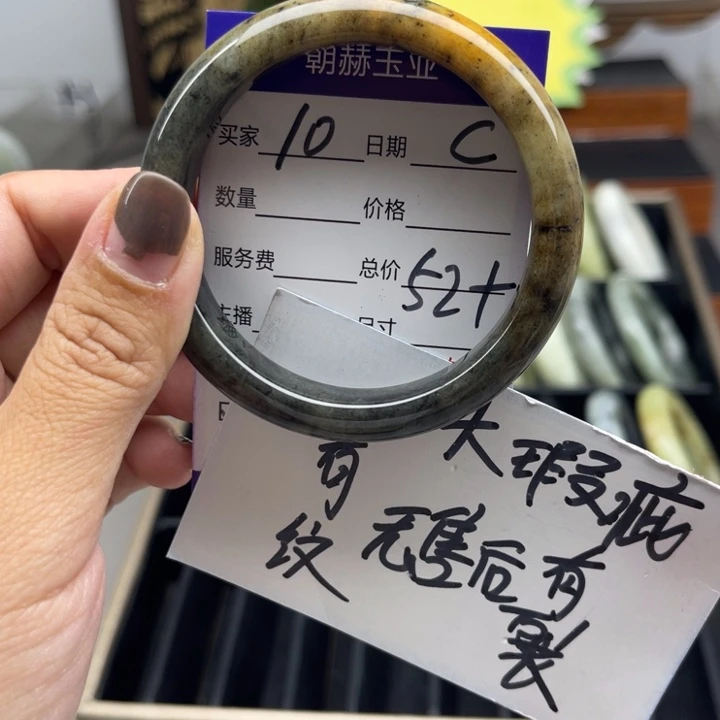 朝赫玉业
买家 10 日期 C
数量 价格
服务费 总价 52+
主播 尺寸
大瑕疵
有 无售后有
纹 裂